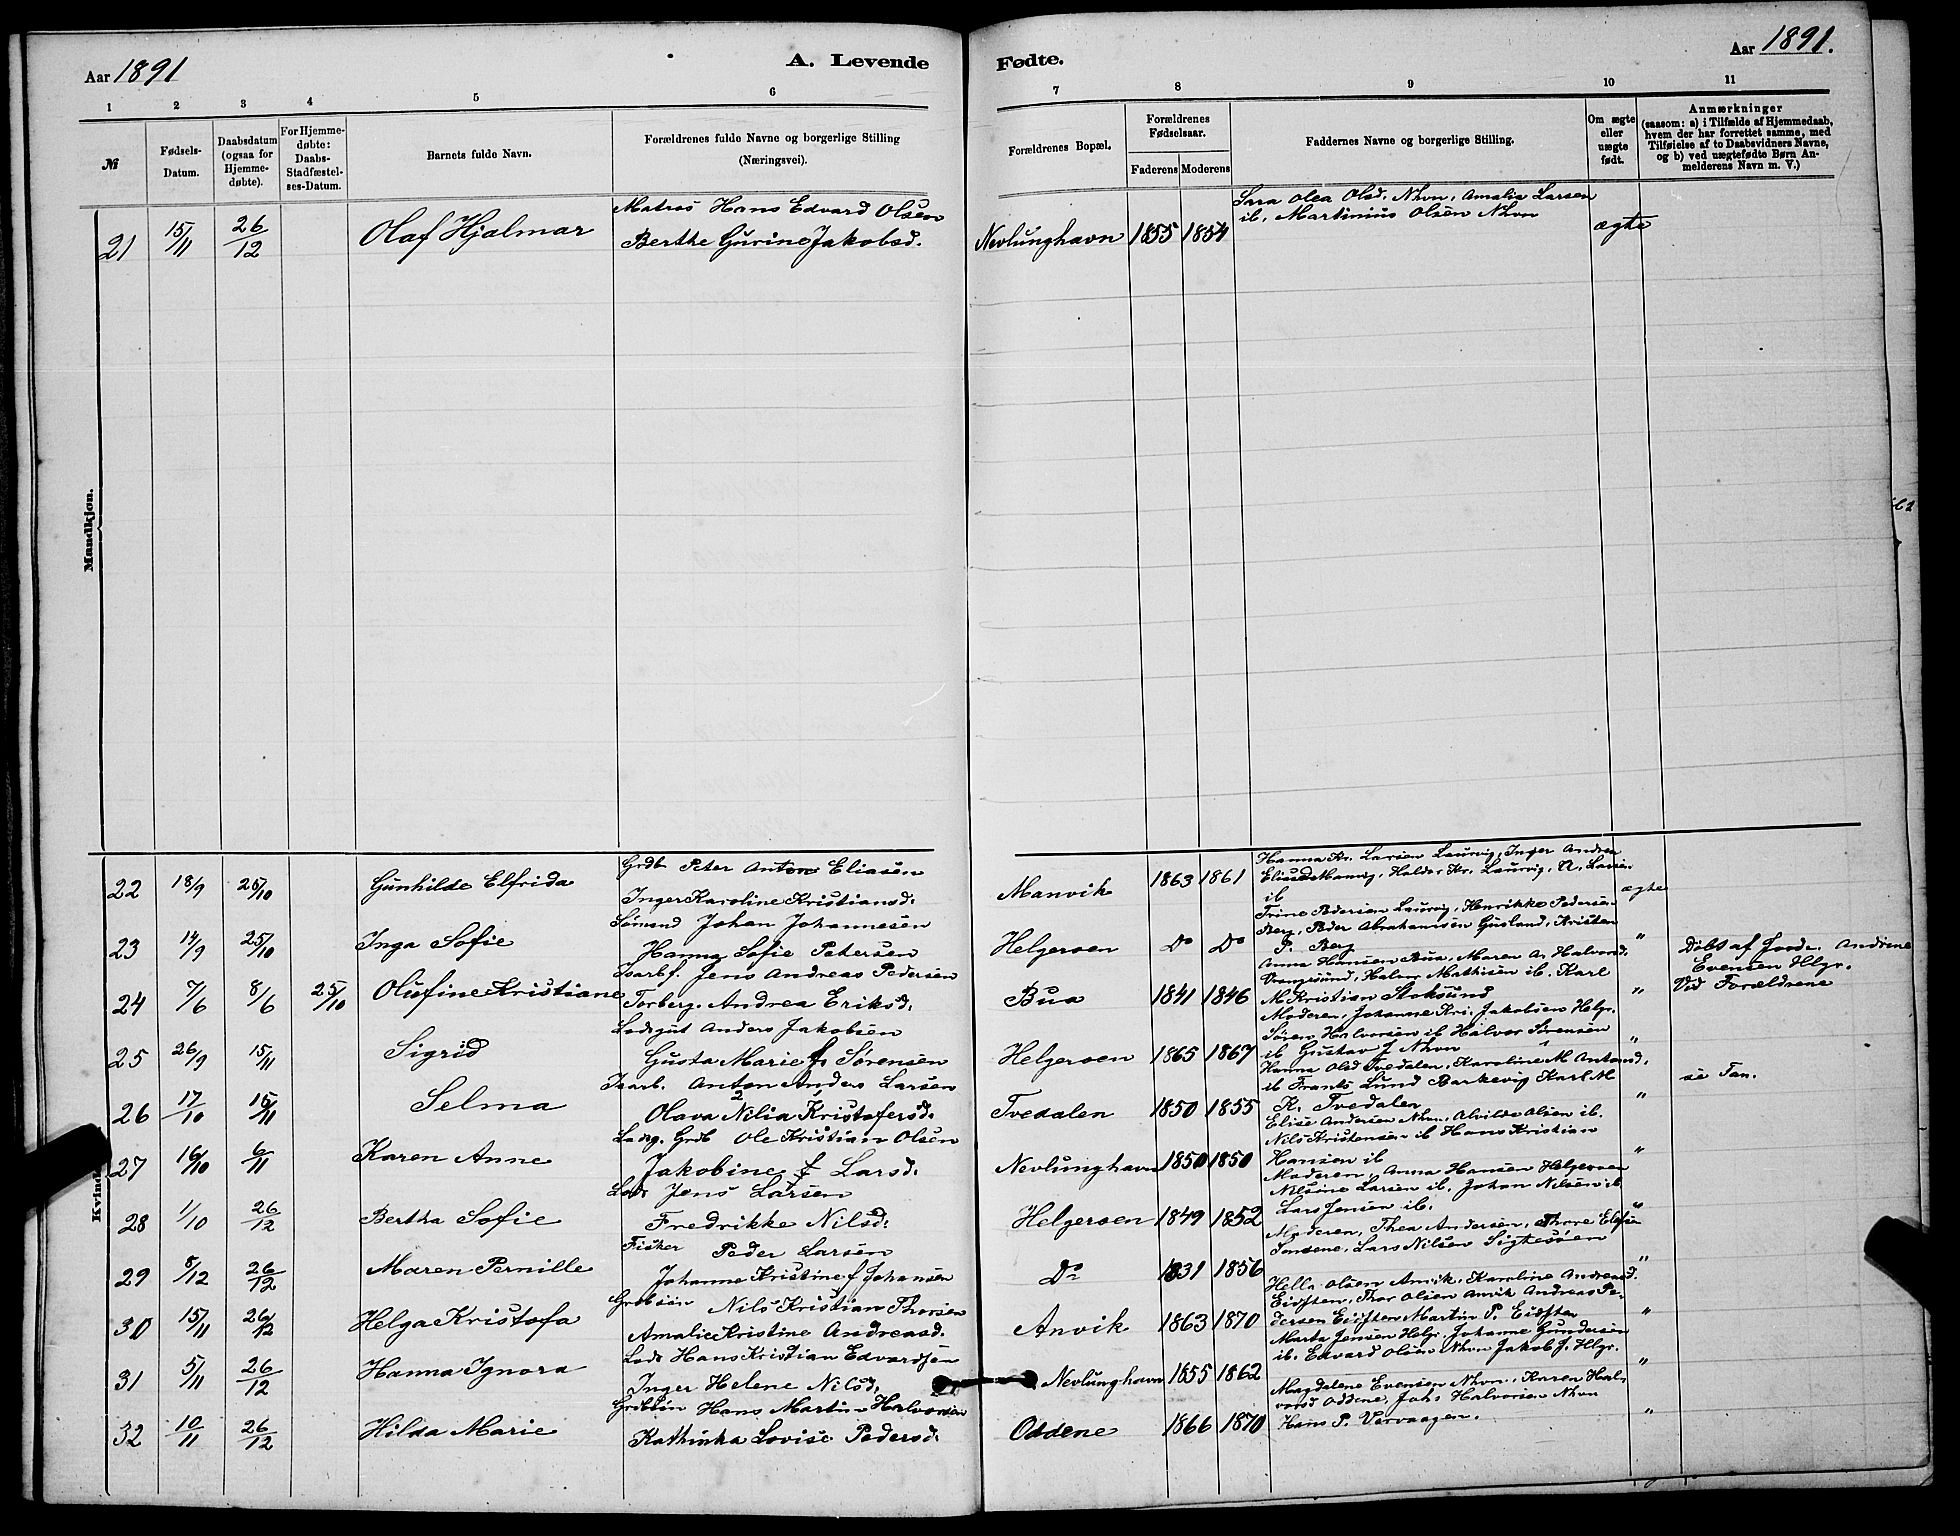 Aar 1891
A. Levende
Fødte.
Aar 1891.
1 2 3 4 5 6
7 8 9 10 11
№
Fødsels-
Datum.
Daabsdatum
(ogsaa for
Hjemme-
døbte).
For Hjemme-
døbte:
Daabs-
Stadfæstel-
ses-Datum.
Barnets fulde Navn.
Forældrenes fulde Navne og borgerlige Stilling
(Næringsvei).
Forældrenes Bopæl.
Forældrenes
Fødselsaar.
Faderens Moderens
Faddernes Navne og borgerlige Stilling.
Om ægte
eller
uægte
født.
Anmærkninger
(saasom: a) i Tilfælde af Hjemmedaab,
hvem der har forrettet samme, med
Tilføielse af to Daabsvidners Navne,
og b) ved uægtefødte Børn An-
melderens Navn m. V.)
Mandkjøn.
21 15/11 26/12 Olaf Hjalmar
Matros Hans Edvard Olsen
Berthe Gurine Jakobsd.
Nevlunghavn 1855 1854
Sara Olea Olsd. Nhvn, Amalia Larsen
ib, Martinius Olsen Nhvn
ægte
22 18/9 25/10 Gunhilde Elfrida
Grdb Peter Anton Eliasen
Inger Karoline Kristiansd.
Manvik 1863 1861
Hanna Kr. Larsen Laurvig, Inger Andrea
Manvig, Halder Kr. Laurvig, A. Larsen
ib
ægte
23 14/9 25/10 Inga Sofie
Sømand Johan Johannesen
Hanna Sofie Petersen
Helgeroen Do Do
Trine Pedersen Laurvig, Henrikke Pedersen
Berg, Peder Abrahamsen Gusland, Kristen
P. Berg
"
24 7/6 8/6 25/10 Olufine Kristiane
Isarbf. Jens Andreas Pedersen
Torberg. Andrea Eriksd.
Bua 1841 1846
Anna Hansen Bua, Maren A. Halvorsd.
Vrangesund, Halvor Mathisen ib. Karl
M Kristian Stoksund
"
Døbt af Jordm. Andrine
Evensen Hlgr.
Ved Forældrene
25 26/9 15/11 Sigrid
Lodsgut Anders Jakobsen
Gusta Marie f Sørensen
Helgeroen 1865 1867
Moderen, Johanne Kri. Jakobsen Helgr.
Søren Halvorsen ib Halvor Sørensen
ib Gustav J Nhvn
"
26 17/10 15/11 Selma
Isarb. Anton Anders Larsen
Olava Nilia Kristofersd.
Tvedalen 1850 1855
Hanna Olsd Tvedalen, Karoline M Antonsd.
ib Frants Lund Barkevig Karl M
K. Tvedalen
"
se Jan.
27 16/10 6/11 Karen Anne
Ladg. Grdb Ole Kristian Olsen
Jakobine f Larsd.
Nevlunghavn 1850 1850
Elise Andersen Nhvn, Alvilde Olsen ib.
Nils Kristensen ib Hans Kristian
Hansen ib
"
Kvind
28 1/10 26/12 Bertha Sofie
Lods Jens Larsen
Fredrikke Nilsd.
Helgeroen 1849 1852
Moderen, Anna Hansen Helgeroen
Nilsine Larsen ib. Johan Nilsen ib
Lars Jensen ib.
"
29 8/12 26/12 Maren Pernille
Fisker Peder Larsen
Johanne Kristine f Johansen
Do 1831 1856
Moderen, Thea Andersen, Thore
Lars Nilsen
"
30 15/11 26/12 Helga Kristofa
Grdbsøn Nils Kristian Thorsen
Amalie Kristine Andreasd.
Anvik 1863 1870
Hella Olsen Anvik, Karoline Andreasd.
Eidsten, Thor Olsen Anvik Andreas Pe-
dersen Eidsten Martin P. Eidsten
"
31 5/11 26/12 Hanna Ignora
Lods Hans Kristian Edvardsen
Inger Helene Nilsd.
Nevlunghavn 1855 1862
Marta Jensen Helgr. Johanne Gundersen
ib. Edvard Olsen Nhvn Jakob J. Hlgr.
"
32 10/11 26/12 Hilda Marie
Grdbsøn Hans Martin Halvorsen
Kathinka Lovise Pedersd.
Oddene 1866 1870
Magdalene Evensen Nhvn, Karen Hal-
vorsd Oddene, Johs Halvorsen Nhvn
Hans P. Vervaagen.
"